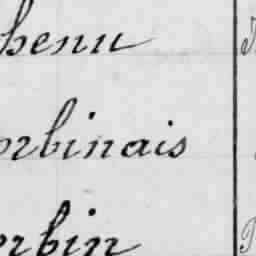 henu
orbinais
orbin